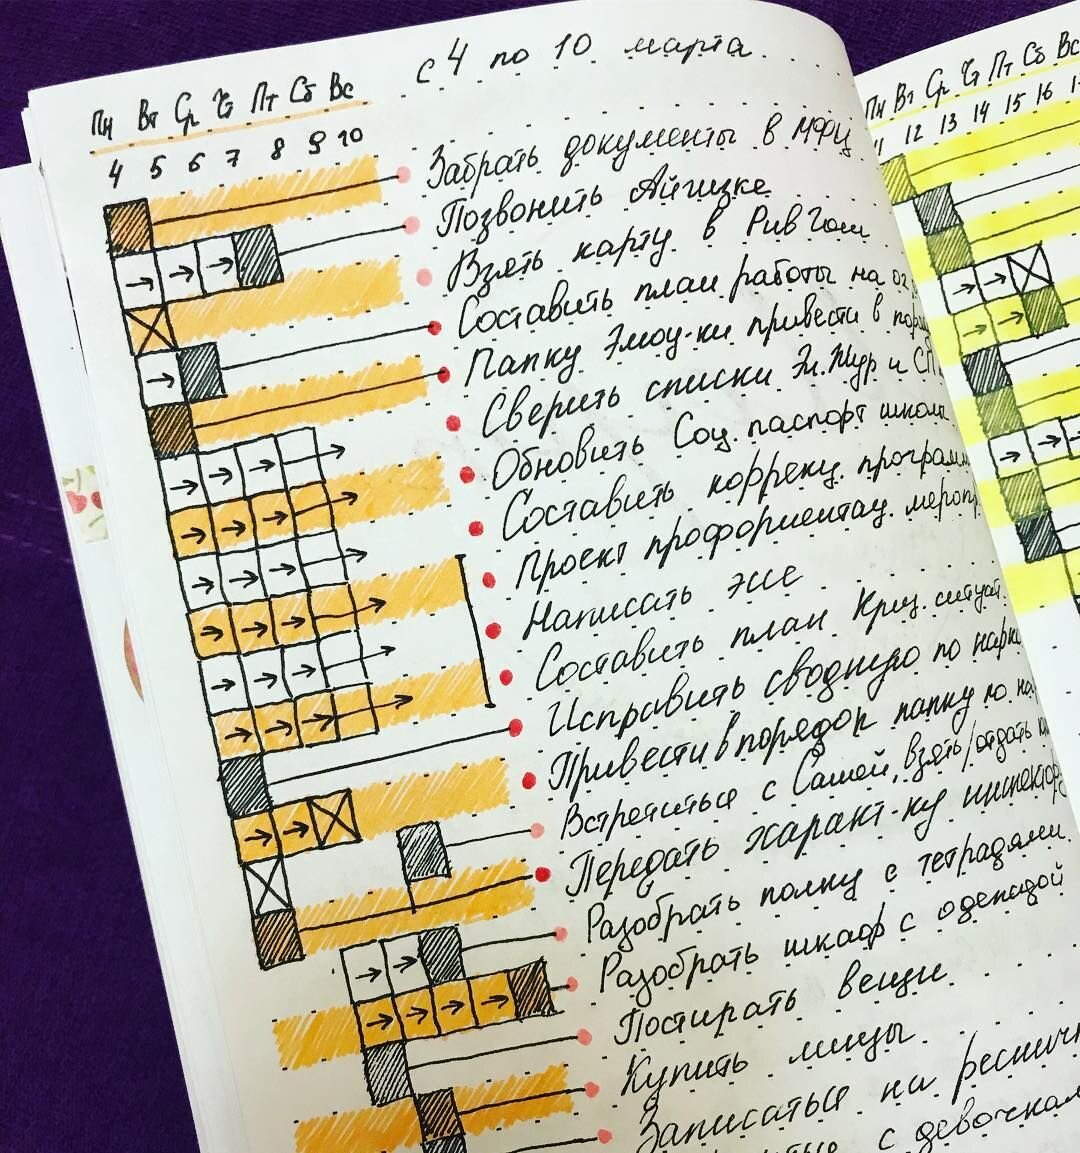 с 4 по 10 марта
Пн Вт Ср Чт Пт Сб Вс
4 5 6 7 8 9 10
Забрать документы в МФЦ
Позвонить Айгизке
Взять карту в РивГош
Составить план работы на
Папку привести в
Сверить списки Эл. Жур и СП
Обновить Соц. паспорт школы
Составить коррекц. программ
Проект профориентац. мероп
Написать эссе
Составить план Криз. ситуат.
Исправить сводную по нарк
Привести в порядок папку по на
Встретиться с Сашей, взять/отдать
Передать характ-ку инспектор
Разобрать полку с тетрадями
Разобрать шкаф с одеждой
Постирать вещи
Купить линзы
Записаться на реснич
с девочкам
Пн Вт Ср Чт Пт Сб Вс
11 12 13 14 15 16